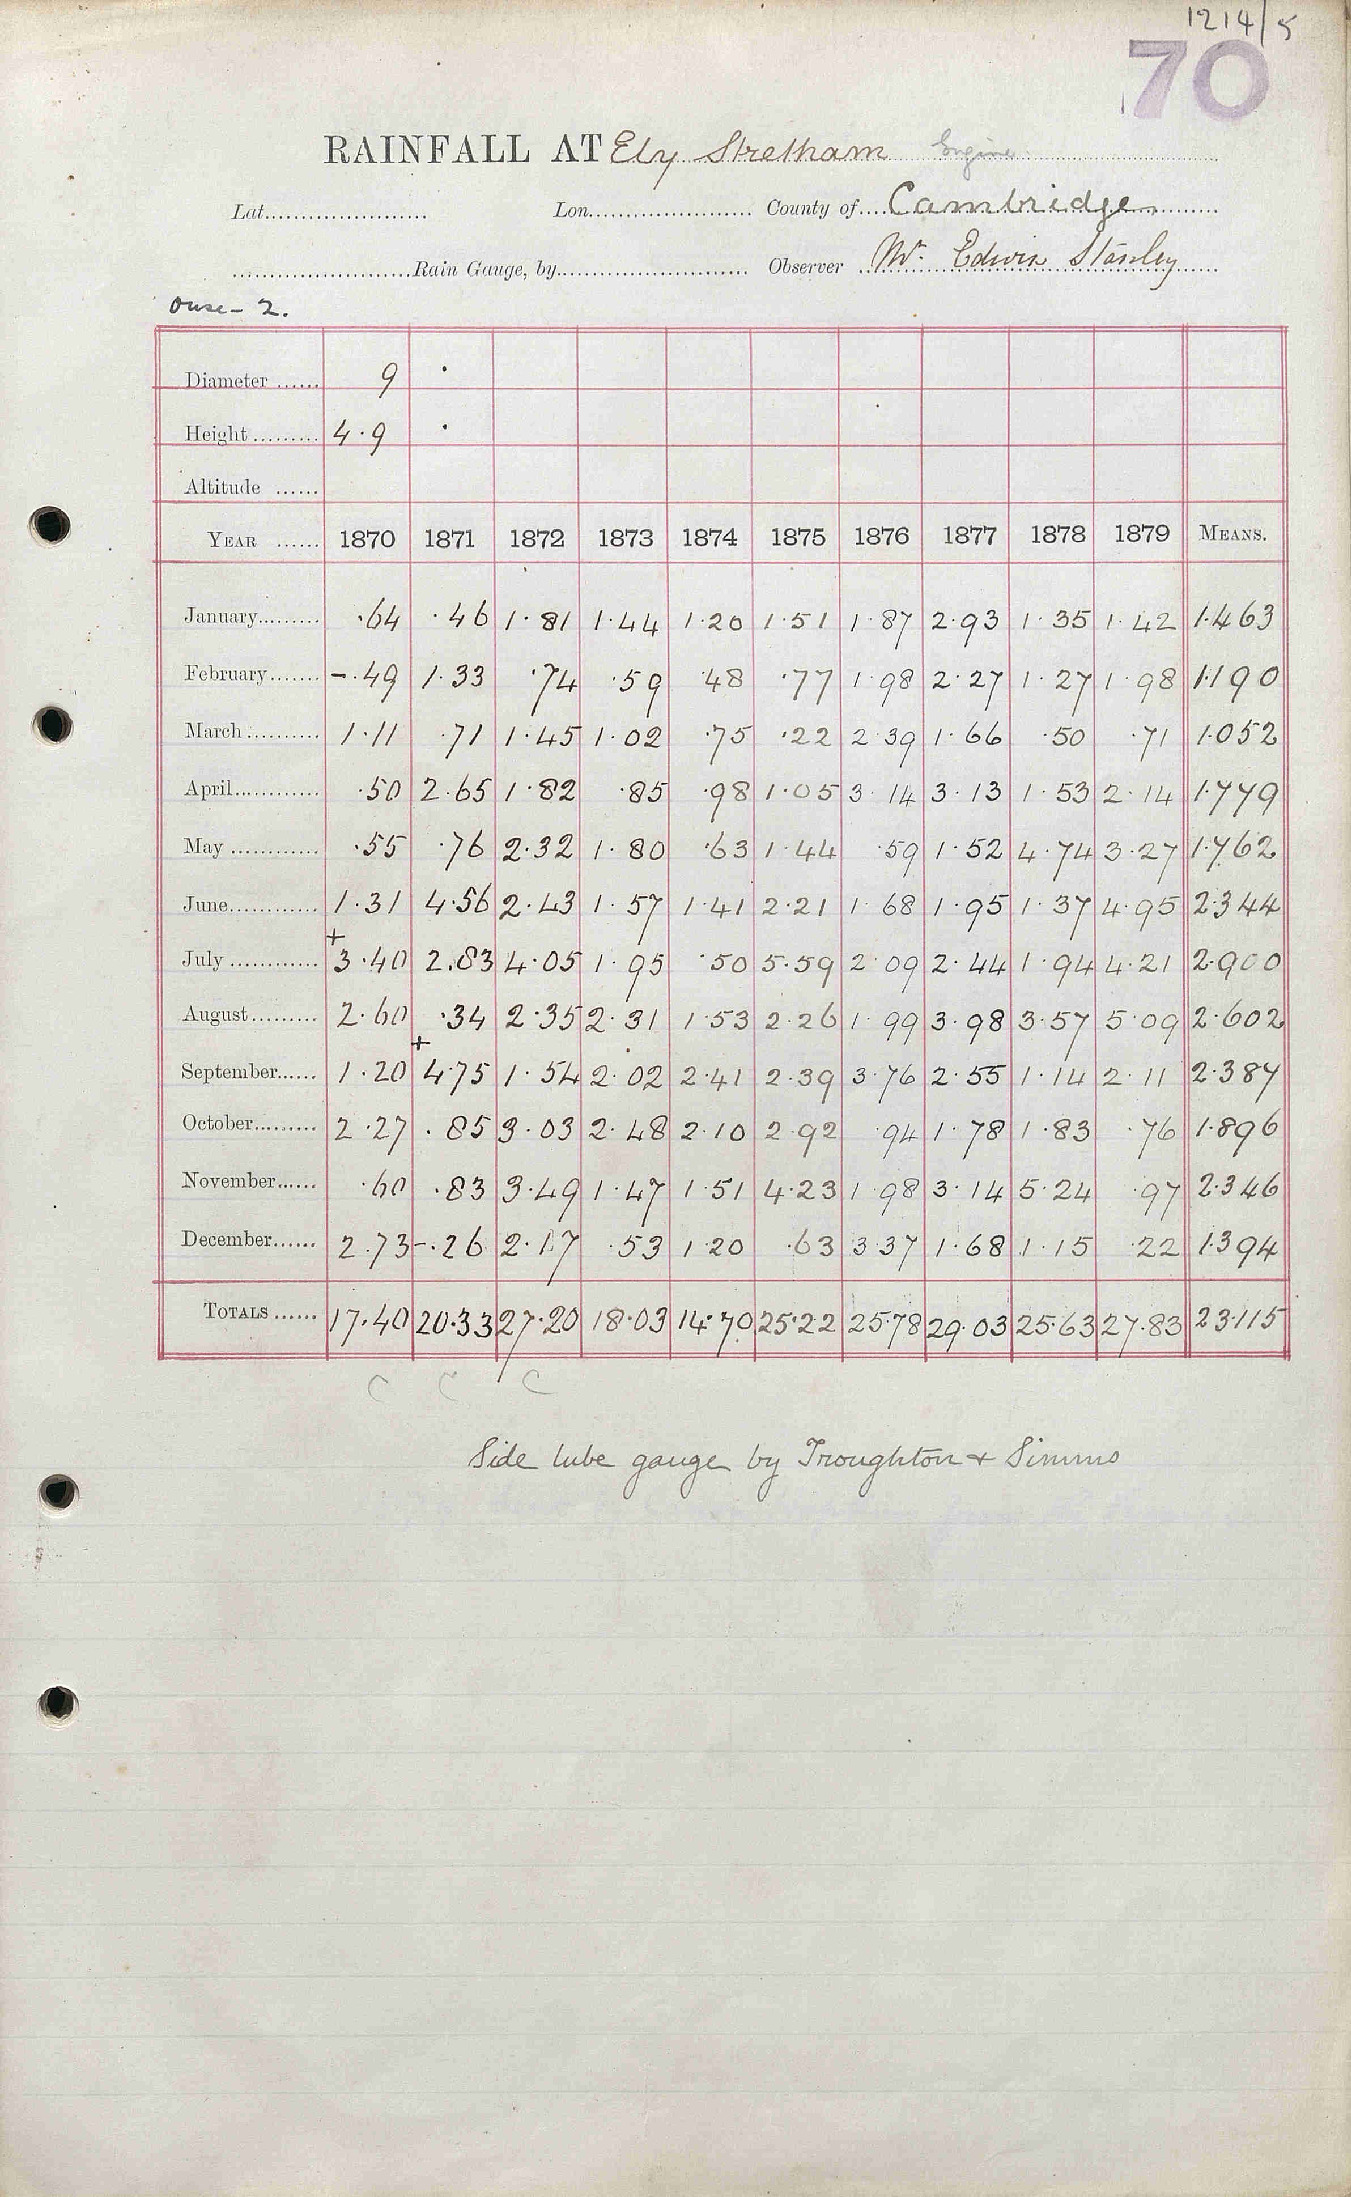 1214/5
70
RAINFALL AT Ely Stretham Engine
Lat. Lon. County of Cambridge
Rain Gauge, by Observer Mr. Edwin Stanley
Ouse - 2.
Diameter 9 ·
Height 4·9 ·
Altitude
YEAR 1870 1871 1872 1873 1874 1875 1876 1877 1878 1879 MEANS.
January ·64 ·46 1·81 1·44 1·20 1·51 1·87 2·93 1·35 1·42 1·463
February -·49 1·33 ·74 ·59 ·48 ·77 1·98 2·27 1·27 1·98 1·190
March 1·11 ·71 1·45 1·02 ·75 ·22 2·39 1·66 ·50 ·71 1·052
April ·50 2·65 1·82 ·85 ·98 1·05 3·14 3·13 1·53 2·14 1·779
May ·55 ·76 2·32 1·80 ·63 1·44 ·59 1·52 4·74 3·27 1·762
June 1·31 4·56 2·43 1·57 1·41 2·21 1·68 1·95 1·37 4·95 2·344
July +3·40 2·83 4·05 1·95 ·50 5·59 2·09 2·44 1·94 4·21 2·900
August 2·60 ·34 2·35 2·31 1·53 2·26 1·99 3·98 3·57 5·09 2·602
September 1·20 +4·75 1·54 2·02 2·41 2·39 3·76 2·55 1·14 2·11 2·387
October 2·27 ·85 3·03 2·48 2·10 2·92 ·94 1·78 1·83 ·76 1·896
November ·60 ·83 3·49 1·47 1·51 4·23 1·98 3·14 5·24 ·97 2·346
December 2·73 -·26 2·17 ·53 1·20 ·63 3·37 1·68 1·15 ·22 1·394
TOTALS 17·40 20·33 27·20 18·03 14·70 25·22 25·78 29·03 25·63 27·83 23·115
C C C
Side tube gauge by Troughton + Simms